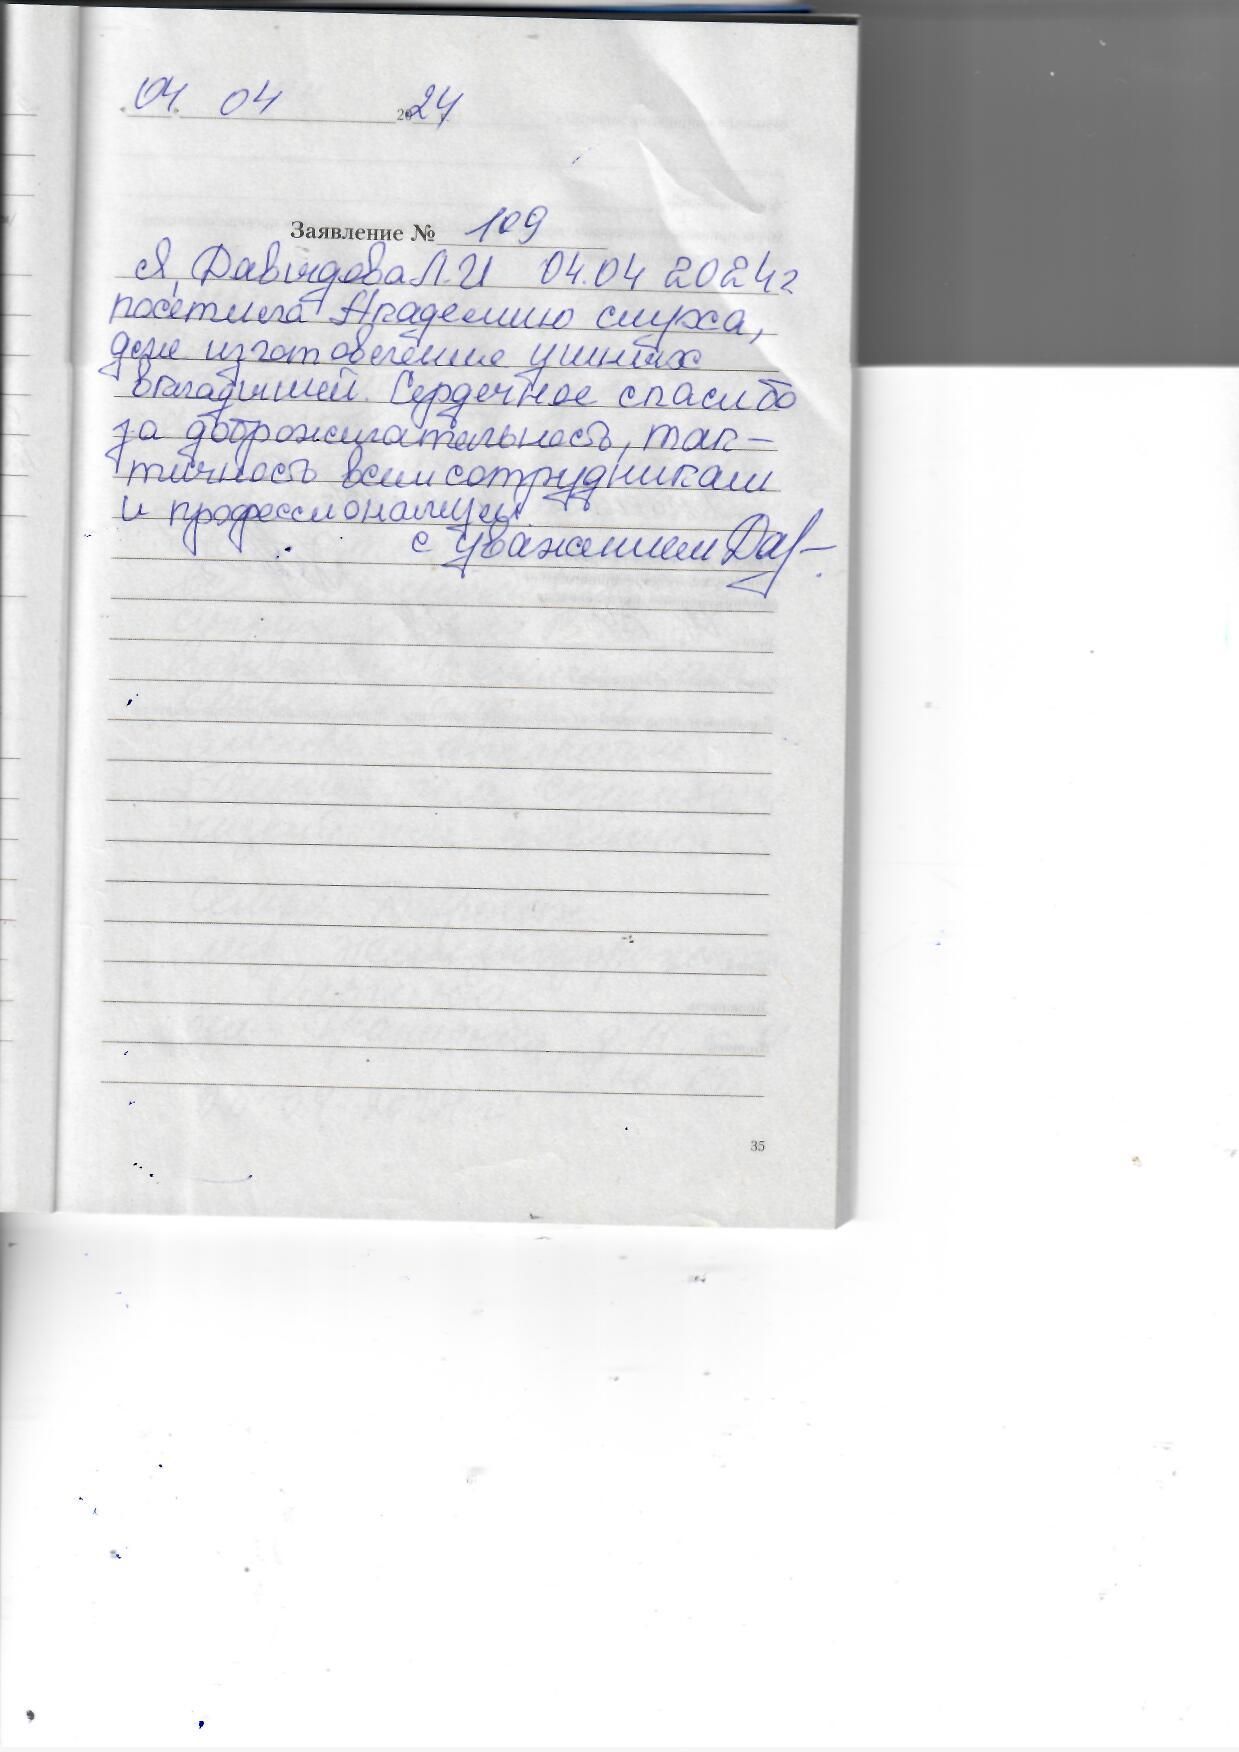 04 04 2024
Заявление № 109
Я, Давыдова Л.И 04.04 2024г
посетила Академию слуха,
для изготовление ушных
вкладышей. Сердечное спасибо
за доброжелательность, так-
тичность всем сотрудникам
и профессионализм.
с уважением Дав
35